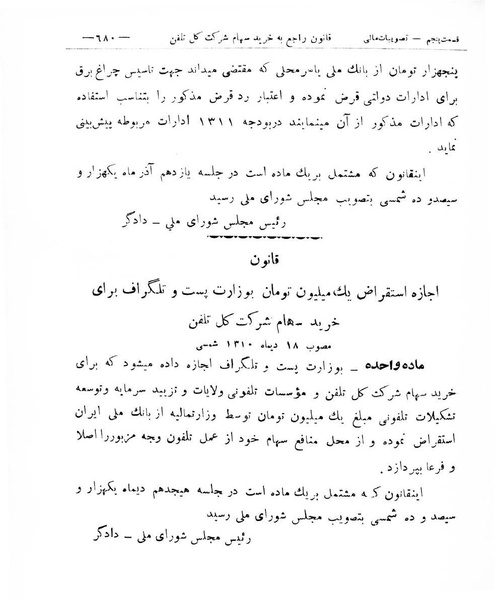 قسمت پنجم — تصویبات مالی قانون راجع به خرید سهام شرکت کل تلفن —۶۸۰—
پنجهزار تومان از بانك ملی یا سرمحلی كه مقتضی میداند جهت تاسیس چراغ برق
برای ادارات دولتی قرض نموده و اعتبار رد قرض مذكور را بتناسب استفاده
كه ادارات مذكور از آن مینمایند دربودجه ۱۳۱۱ ادارات مربوطه پیش‌بینی
نماید .
اینقانون كه مشتمل بریك ماده است در جلسه یازدهم آذر ماه یكهزار و
سیصدو ده شمسی بتصویب مجلس شورای ملی رسید
رئیس مجلس شورای ملی ـ دادگر
قانون
اجازه استقراض یك میلیون تومان بوزارت پست و تلگراف برای
خرید سهام شرکت کل تلفن
مصوب ۱۸ دیماه ۱۳۱۰ شمسی
ماده واحده ـ بوزارت پست و تلگراف اجازه داده میشود كه برای
خرید سهام شركت كل تلفن و مؤسسات تلفونی ولایات و تزیید سرمایه وتوسعه
تشكیلات تلفونی مبلغ یك میلیون تومان توسط وزارتمالیه از بانك ملی ایران
استقراض نموده و از محل منافع سهام خود از عمل تلفون وجه مزبوررا اصلا
و فرعا بپردازد .
اینقانون كه مشتمل بریك ماده است در جلسه هیجدهم دیماه یكهزار و
سیصد و ده شمسی بتصویب مجلس شورای ملی رسید
رئیس مجلس شورای ملی ـ دادگر